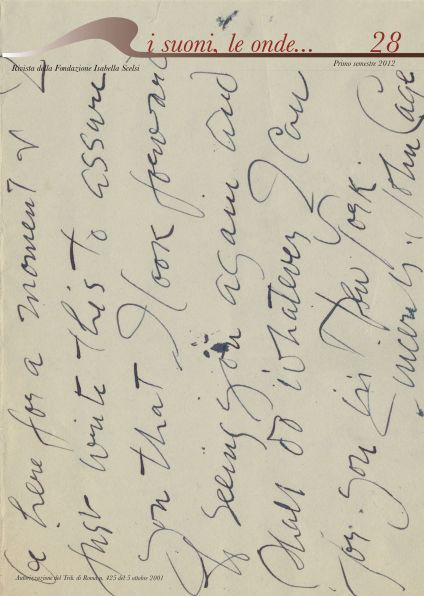 i suoni, le onde... 28
Rivista della Fondazione Isabella Scelsi
Primo semestre 2012
be here for a moment &
just write this to assure
you that I look forward
to seeing you again and
shall do whatever I can
for you in New York.
Sincerely, John Cage
Autorizzazione del Trib. di Roma n. 425 del 5 ottobre 2001